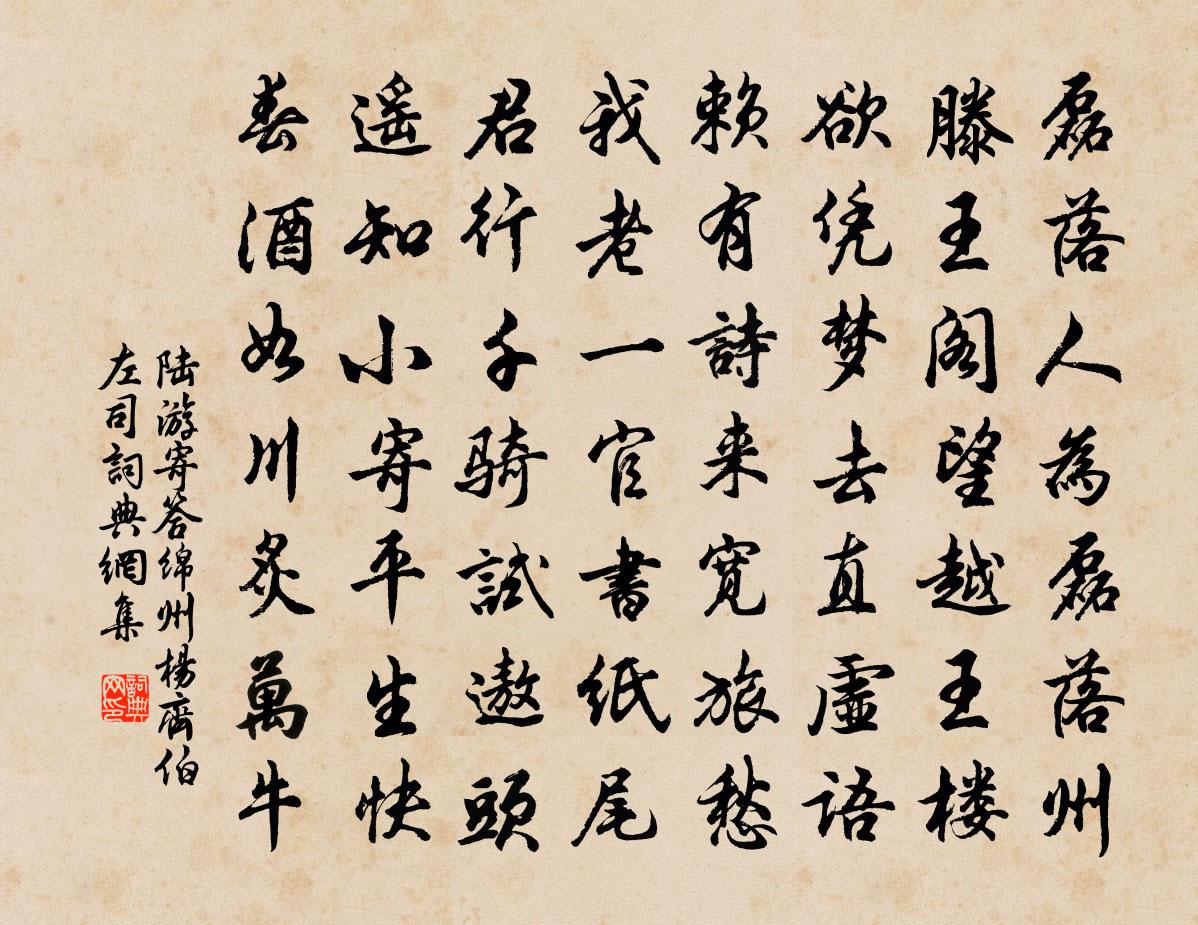 磊落人為磊落州
滕王阁望越王楼
欲凭梦去直虛语
赖有詩来宽旅愁
我老一官書纸尾
君行千骑試遨頭
遥知小寄平生快
春酒如川炙萬牛
陆游寄答绵州楊齊伯
左司詞典網集
詞典网印